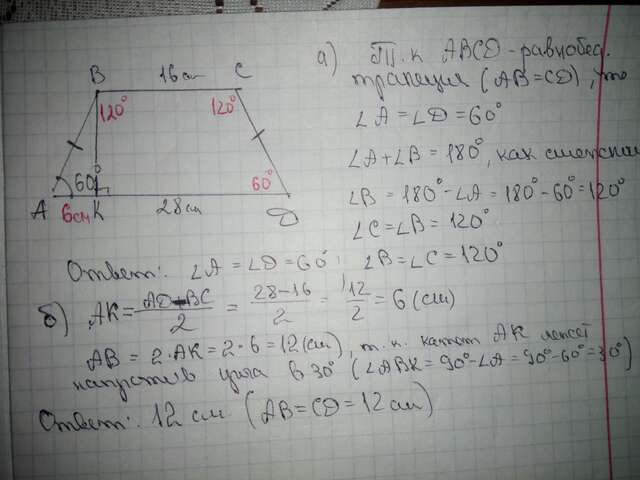 B 16 см C
120° 120°
60° 60°
A 6см K 28 см D
а) Т.к ABCD - равнобед.
трапеция (AB=CD), то
∠A = ∠D = 60°
∠A + ∠B = 180°, как смежные
∠B = 180° - ∠A = 180° - 60° = 120°
∠C = ∠B = 120°
Ответ: ∠A = ∠D = 60°; ∠B = ∠C = 120°
б) AK = AD - BC / 2 = 28 - 16 / 2 = 12 / 2 = 6 (см)
AB = 2·AK = 2·6 = 12 (см), т.к. катет AK лежит
напротив угла в 30° (∠ABK = 90° - ∠A = 90° - 60° = 30°)
Ответ: 12 см (AB = CD = 12 см)